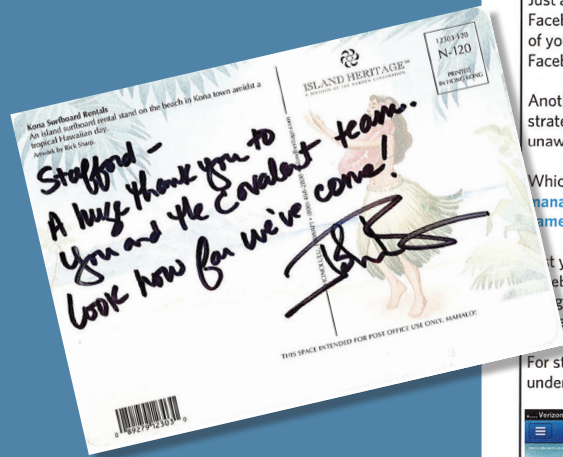 Kona Surfboard Rentals
An island surfboard rental stand on the beach in Kona town amidst a
tropical Hawaiian day.
Artwork by Rick Sharp.
ISLAND HERITAGE™
A DIVISION OF THE MADDEN CORPORATION
12303-120
N-120
PRINTED
IN HONG KONG
Stafford -
A huge thank you to
you and the Covalent team.
Look how far we've come!
THIS SPACE INTENDED FOR POST OFFICE USE ONLY. MAHALO!
0 89279 12303 0
Just a
Faceb
of you
Faceb
Anoth
strate
unaw
Whic
mana
ame
t y
For st
under
Verizon